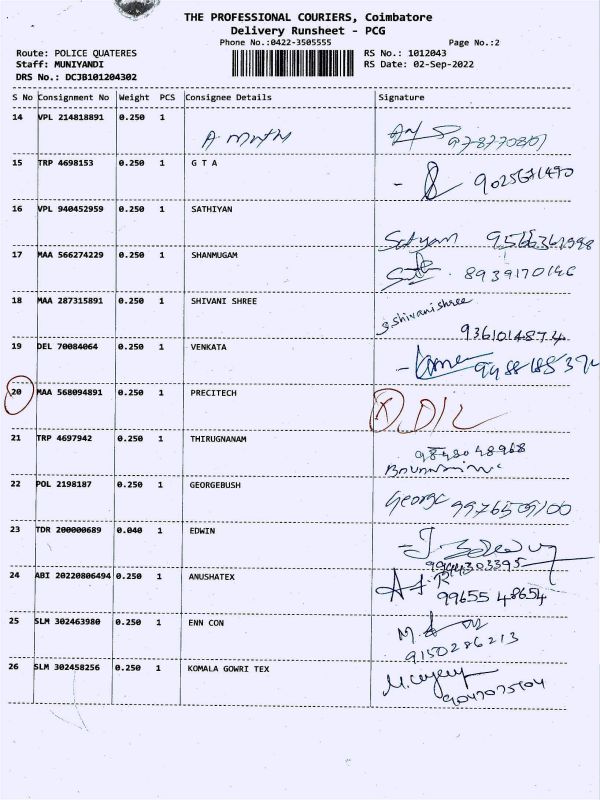 THE PROFESSIONAL COURIERS, Coimbatore
Delivery Runsheet - PCG
Phone No.:0422-3505555 Page No.:2
Route: POLICE QUATERES RS No.: 1012043
Staff: MUNIYANDI RS Date: 02-Sep-2022
DRS No.: DCJB101204302
S No Consignment No Weight PCS Consignee Details Signature
14 VPL 214818891 0.250 1
15 TRP 4698153 0.250 1 G T A
16 VPL 940452959 0.250 1 SATHIYAN
Satyam
17 MAA 566274229 0.250 1 SHANMUGAM
8939170146
18 MAA 287315891 0.250 1 SHIVANI SHREE
S.Shivani shree
9361014874
19 DEL 70084064 0.250 1 VENKATA
20 MAA 568094891 0.250 1 PRECITECH
D/L
21 TRP 4697942 0.250 1 THIRUGNANAM
9848048968
22 POL 2198187 0.250 1 GEORGEBUSH
George
23 TDR 200000689 0.040 1 EDWIN
24 ABI 20220806494 0.250 1 ANUSHATEX
99655 48654
25 SLM 302463980 0.250 1 ENN CON
9150286213
26 SLM 302458256 0.250 1 KOMALA GOWRI TEX